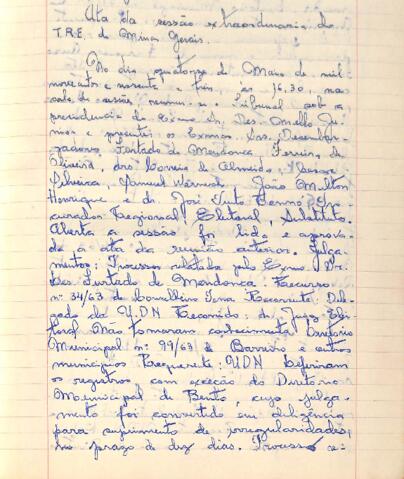 Ata da sessão extraordinaria do
T.R.E. de Minas Gerais.
No dia quatorze de Maio de mil
novecentos e sessenta e três, as 16,30, na
sala de sessões, reuniu-se o Tribunal sob a
presidencia do Exmo Sr. Des. Mello Ju-
nior e presentes os Exmos. Srs. Desembar-
gadores Furtado de Mendonça Ferreira de
Oliveira, drs. Correia de Almeida,
Silveira, Samuel Werneck, João Milton
Henrique e dr. José Pro-
curador Regional Eleitoral, Substituto.
Aberta a sessão foi lida e aprova-
da a ata da reunião anterior. Julga-
mentos: Processos relatados pelo Exmo. Sr.
Des. Furtado de Mendonça Recurso
nº 34/63 de Conselheiro Pena Recorrente: Dele-
gado da UDN Recorrido: dr. Juiz Elei-
toral Não tomaram conhecimento Diretório
Municipal nº 99/63 de Barreiro e outros
municipios Requerente: UDN Deferiram
os registros com exceção do Diretorio
Municipal de cujo julga-
mento foi convertido em diligência
para suprimento de irregularidades,
no prazo de dez dias. Processo